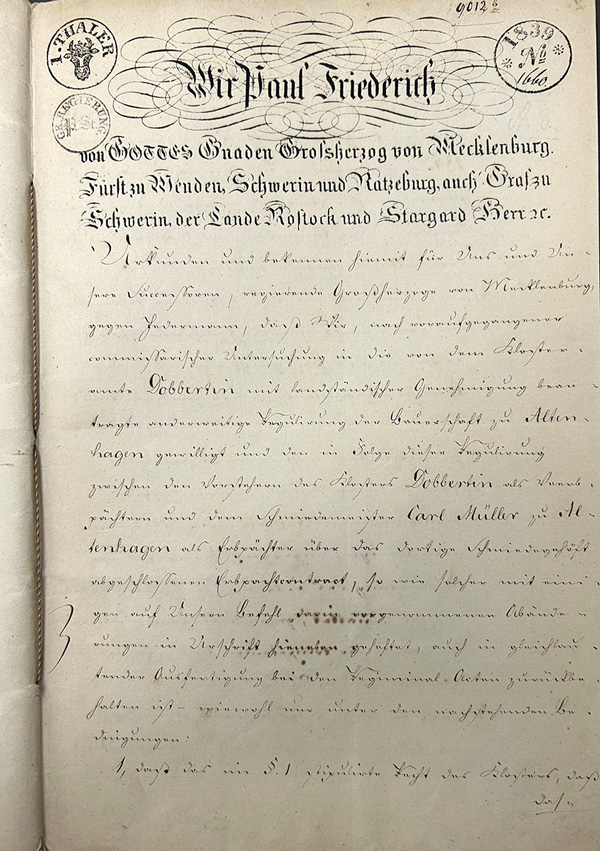 9012 b
1. THALER
1839
No
1660.
GR. REGIERUNG
Wir Paul Friederich
von GOTTES Gnaden Grossherzog von Mecklenburg.
Fürst zu Wenden, Schwerin und Ratzeburg, auch Graf zu
Schwerin, der Lande Rostock und Stargard Herr ꝛc.
Urkunden und bekennen hiemit für Uns und Un-
sere Successoren, regierende Großherzoge von Mecklenburg,
gegen Jedermann, daß Wir, nach voraufgegangener
commissarischer Untersuchung in die von dem Kloster-
amte Dobbertin mit landständischer Genehmigung bean-
tragte anderweitige Regulirung der Bauerschaft zu Alten-
hagen gewilligt und den in Folge dieser Regulirung
zwischen den Vorstehern des Klosters Dobbertin als Vererb-
pächtern und dem Schmiedemeister Carl Müller zu Al-
tenhagen als Erbpächter über das dortige Schmiedegehöft
abgeschlossenen Erbpachtcontract, so wie solcher mit eini-
gen auf Unsern Befehl darin vorgenommenen Abände-
rungen in Urschrift hieneben geheftet, auch in gleichlau-
tender Ausfertigung bei den Regiminal-Acten zurückbe-
halten ist – wiewohl nur unter den nachstehenden Be-
dingungen:
1, daß das im §. 1 stipulirte Recht des Klosters, daß
das